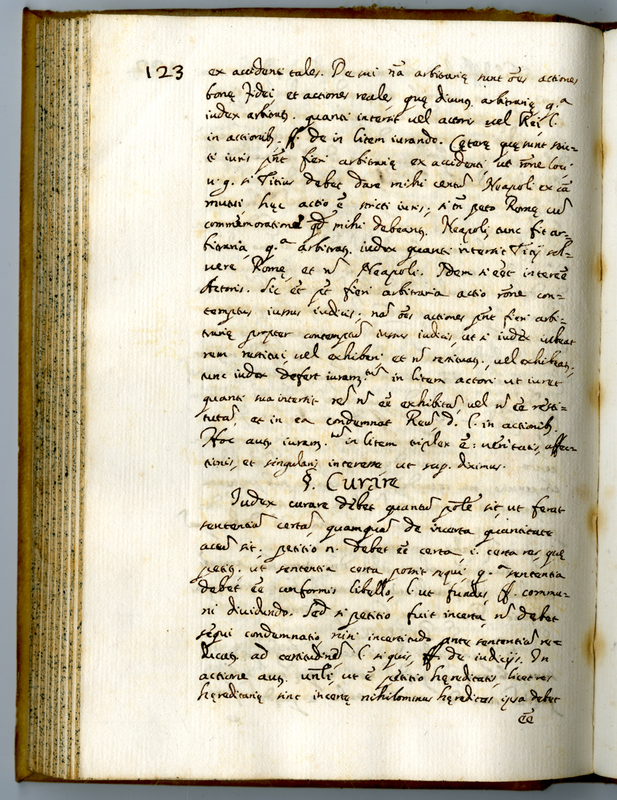 123
ex accidenti tales. De sui nã arbitrarię sunt oẽs actiones
bonę fidei et actiones reales quę dicunt. arbitrarię q.ª
iudex arbitrat. quanti intersit vel actoris vel Rei l.
in actionib. ff de in litem iurando. Cęterę quę sunt stric-
ti iuris pñt fieri arbitrarię ex accidenti, ut rõne loci
v. g. si Titius debet dare mihi centũ Neapoli ex cã
mutui hęc actio ẽ stricti iuris, si tñ peto Romę cũ
commemoratione qd mihi debeant. Neapoli, tunc fit ar-
bitraria q.ª arbitrat. iudex quanti intersit Titij sol-
vere Romę, et nõ Neapoli. Idem si eẽt interẽe
Actoris. Sic et pt fieri arbitraria actio rõne con-
temptus iussus iudicis, nam oẽs actiones pñt fieri arbi-
trarię propter contemptũ iussus iudicis, ut si iudex iubeat
rem restitui, vel exhiberi et nõ restituat. vel exhibeat,
tunc iudex defert iuram.tũ in litem actori ut iuret
quanti sua intersit rẽ nõ eẽ exhibitã, vel nõ eẽ resti-
tutã, et in ea condemnat Reũ d. l. in actionib.
Hoc aut. iuram.tũ in litem triplex ẽ: veritatis, affec-
tionis, et singularis interesse ut sup. diximus.
§. Curare
Iudex curare debet quantũ pọle sit, ut ferat
sententiã certã, quamquã de incerta quantitate
actũ sit, petitio n. debet eẽ certa, i. certa res, quę
petit. ut sententia certa possit sequi q.ª sententia
debet eẽ conformis libello, l. ut fundus, ff. commu-
ni dividundo. Sed si petitio fuit incerta, nõ debet
sequi condemnatio, nisi incertitudo ante sententiã re-
ducat. ad certitudinẽ l. si quis, ff de iudicijs. In
actione aut. unli, ut ẽ petitio hęreditatis, licet res
hęreditarię sint incertę nihilominus hęreditas ipsa debet
eẽ